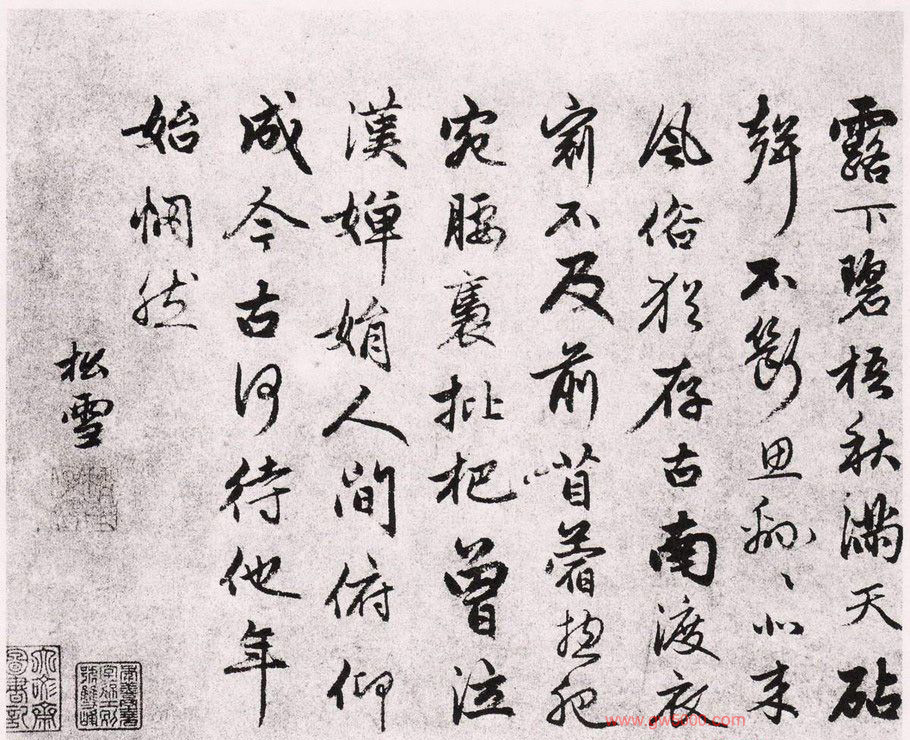 露下碧梧秋滿天砧
聲不斷思綿〻北來
風俗猶存古南渡衣
冠不及前苜蓿揔肥
宛腰褭枇杷曾泣
漢嬋娟人間俯仰
成今古何待他年
始惘然
松雪